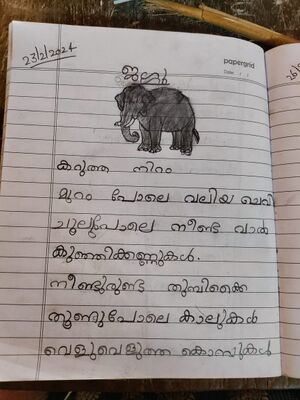 23/2/2024
papergrid
Date: / /
ജന്തു
കറുത്ത നിറം
മുറം പോലെ വലിയ ചെവി
ചൂലുപോലെ നീണ്ട വാൽ
കുഞ്ഞിക്കണ്ണുകൾ.
നീണ്ടുരുണ്ട തുമ്പിക്കൈ
തൂണുപോലെ കാലുകൾ
വെളുവെളുത്ത കൊമ്പുകൾ